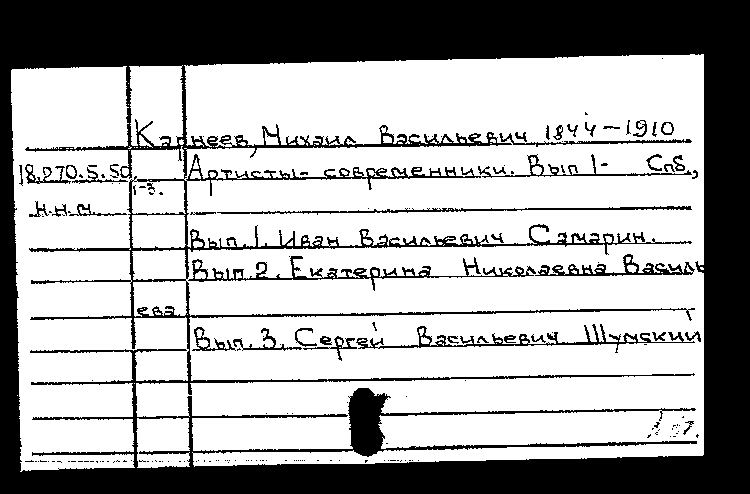 Карнеев, Михаил Васильевич 1844-1910
18.270.5.50 Артисты-современники. Вып 1- Спб.,
1-3.
н.н.м.
Вып. 1. Иван Васильевич Самарин.
Вып 2. Екатерина Николаевна Василь
ева
Вып. 3. Сергей Васильевич Шумский